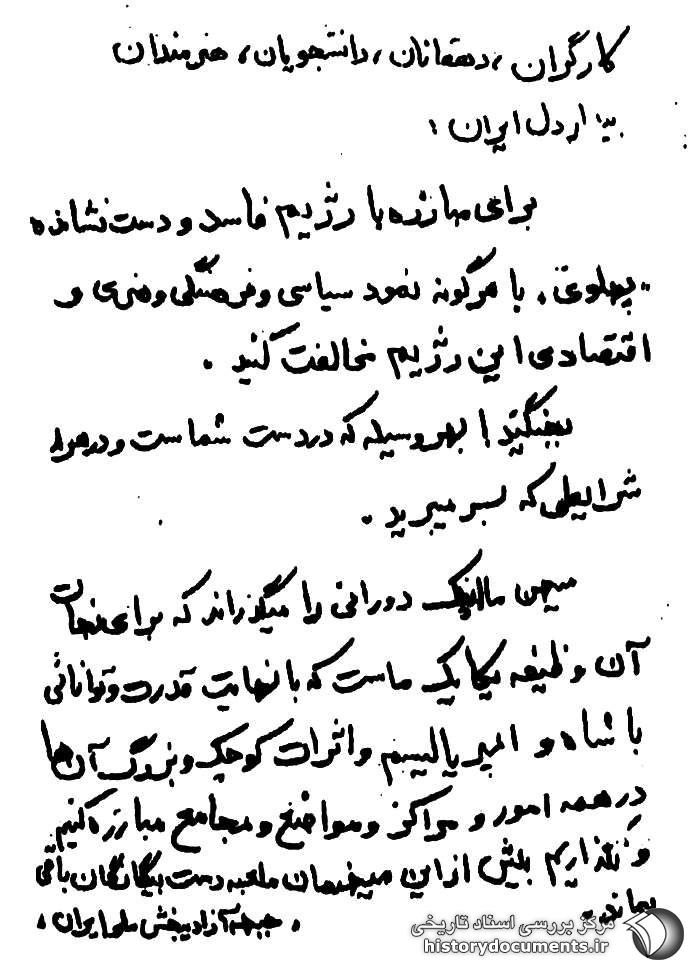 کارگران، دهقانان، دانشجویان، هنرمندان
بیداردل ایران:
برای مبارزه با رژیم فاسد و دست نشانده
"پهلوی"، با هرگونه نمود سیاسی و فرهنگی و هنری و
اقتصادی این رژیم مخالفت کنید.
بجنگید! بهر وسیله که در دست شماست و در هر
شرایطی که بسر میبرید.
میهن ما اینک دورانی را میگذراند که برای نجات
آن وظیفه یکایک ماست که با نهایت قدرت و توانائی
با شاه و امپریالیسم و اثرات کوچک و بزرگ آن ها
در همه امور و مراکز و مواضع و مجامع مبارزه کنیم
و نگذاریم بیش از این میهنمان ملعبه دست بیگانگان باقی
بماند.
. جبهه آزادیبخش ملی ایران.
مرکز بررسی اسناد تاریخی
historydocuments.ir